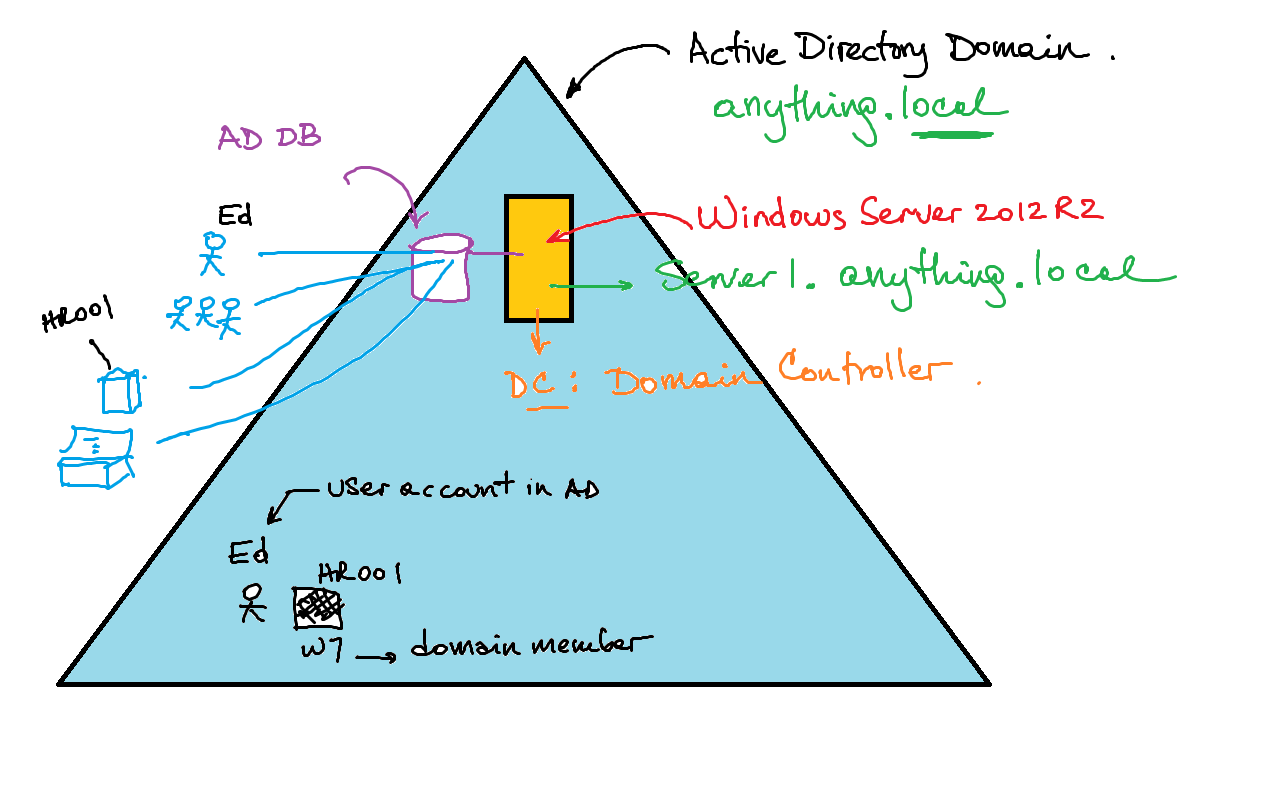 Active Directory Domain.
anything.local
AD DB
Ed
Windows Server 2012 R2
Server1. anything.local
HR001
DC: Domain Controller.
user account in AD
Ed
HR001
W7 → domain member